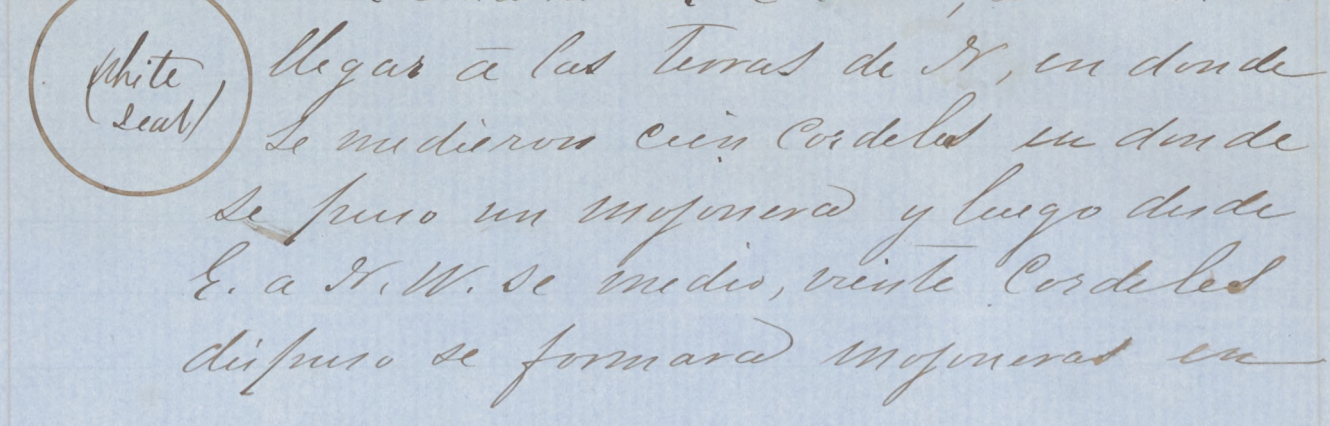 (white
seal)
llegar a las terras de N, en donde
se medieron cien Cordeles en donde
se puso un mojonera y luego desde
E. a N. W. se medio, viente Cordeles
dispuso se formara mojoneras en